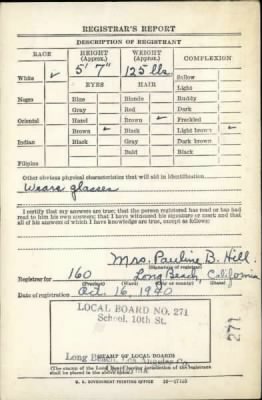 REGISTRAR'S REPORT
DESCRIPTION OF REGISTRANT
RACE HEIGHT (Approx.) WEIGHT (Approx.) COMPLEXION
White ✓ 5' 7" 125 lbs. Sallow
Light
EYES HAIR
Negro Blue Blonde Ruddy
Gray Red Dark
Oriental Hazel Brown ✓ Freckled
Brown ✓ Black Light brown ✓
Indian Black Gray Dark brown
Bald Black
Filipino
Other obvious physical characteristics that will aid in identification
Wears glasses
I certify that my answers are true; that the person registered has read or has had
read to him his own answers; that I have witnessed his signature or mark and that
all of his answers of which I have knowledge are true, except as follows:
Mrs. Pauline B. Hill
(Signature of registrar)
Registrar for 160 Long Beach, California
(Precinct) (Ward) (City or county) (State)
Date of registration Oct. 16, 1940
LOCAL BOARD NO. 271
School, 10th St.
271
Long Beach, Los Angeles Co.
(STAMP OF LOCAL BOARD)
(The stamp of the Local Board having jurisdiction of the registrant
shall be placed in the above space.)
U. S. GOVERNMENT PRINTING OFFICE